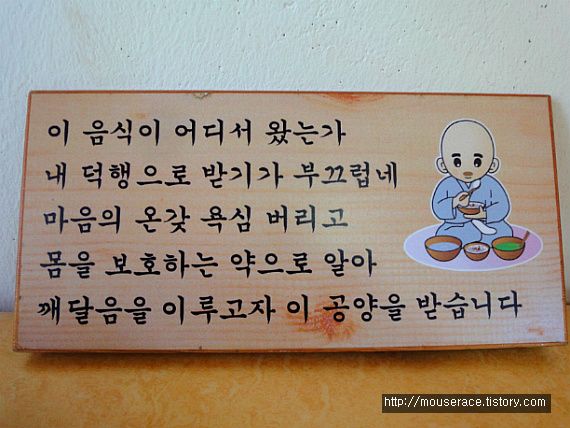 이 음식이 어디서 왔는가
내 덕행으로 받기가 부끄럽네
마음의 온갖 욕심 버리고
몸을 보호하는 약으로 알아
깨달음을 이루고자 이 공양을 받습니다
http://mouserace.tistory.com